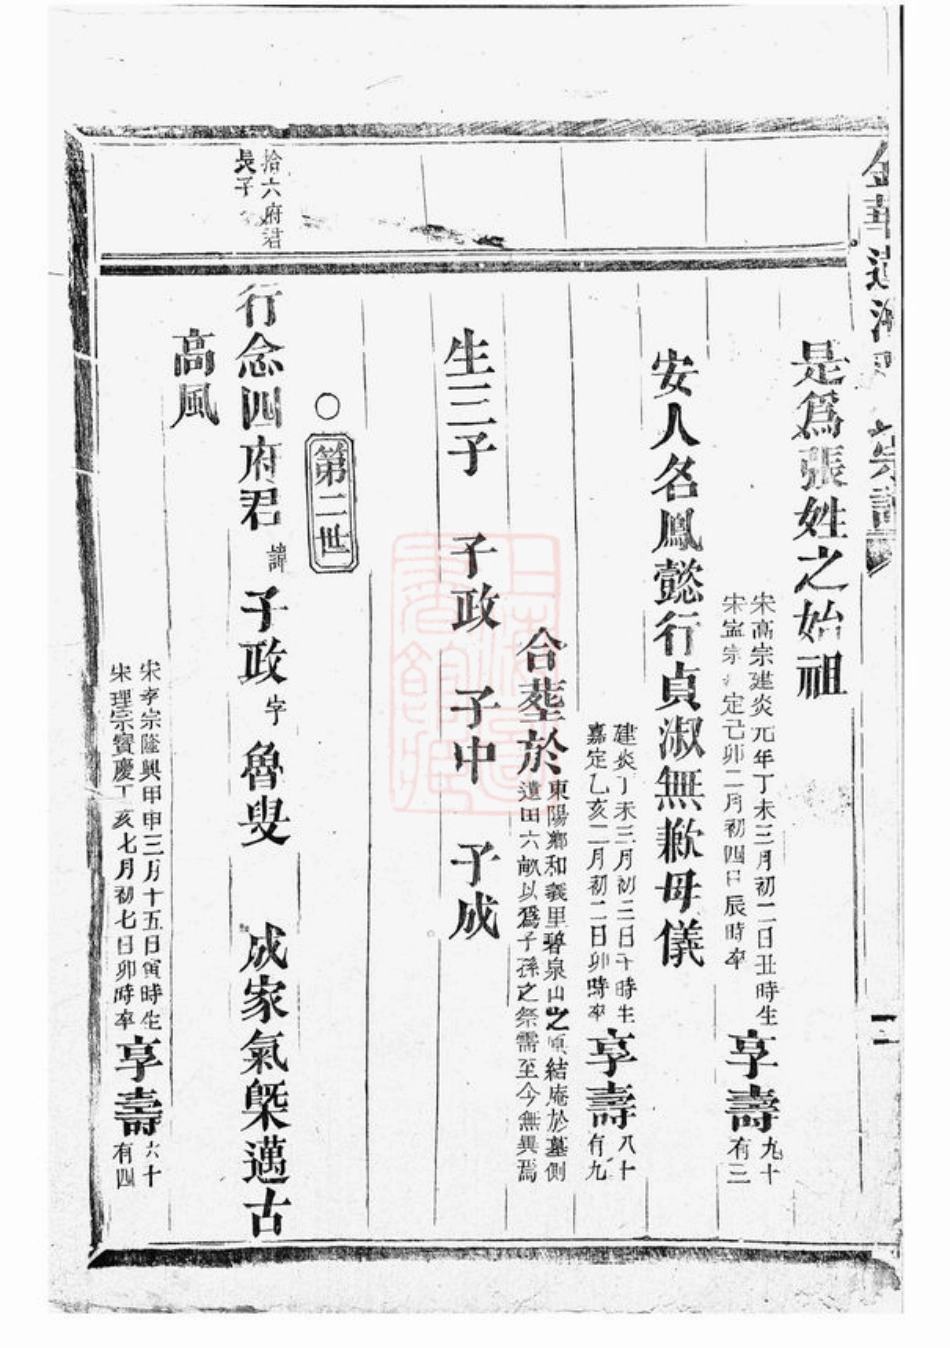 是為張姓之始祖
宋高宗建炎元年丁未三月初二日丑時生
宋寍宗定己卯二月初四日辰時卒
享壽
九十
有三
安人名鳳懿行貞淑無歉母儀
建炎丁未三月初三日午時生
嘉定乙亥二月初二日卯時卒
享壽
八十
有九
合葬於
東陽鄉和義里碧泉山之原結庵於墓側
遺田六畝以爲子孫之祭需至今無異焉
生三子 子政 子中 子成
○
第二世
拾六府君
長子
行念四府君 諱 子政 字 魯叟 成家氣槩邁古
高風
宋孝宗隆興甲申三月十五日寅時生
宋理宗寶慶丁亥七月初七日卯時卒
享壽
六十
有四
金華 宗譜
二